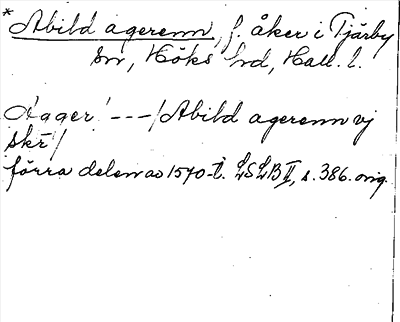 *Abild agerenn, f. åker i Tjärby
sn, Höks hd, Hall. l.
Aager! ---/Abild agerenn vj
skr/
förra delen av 1570-t. LSLB II, s. 386. orig.